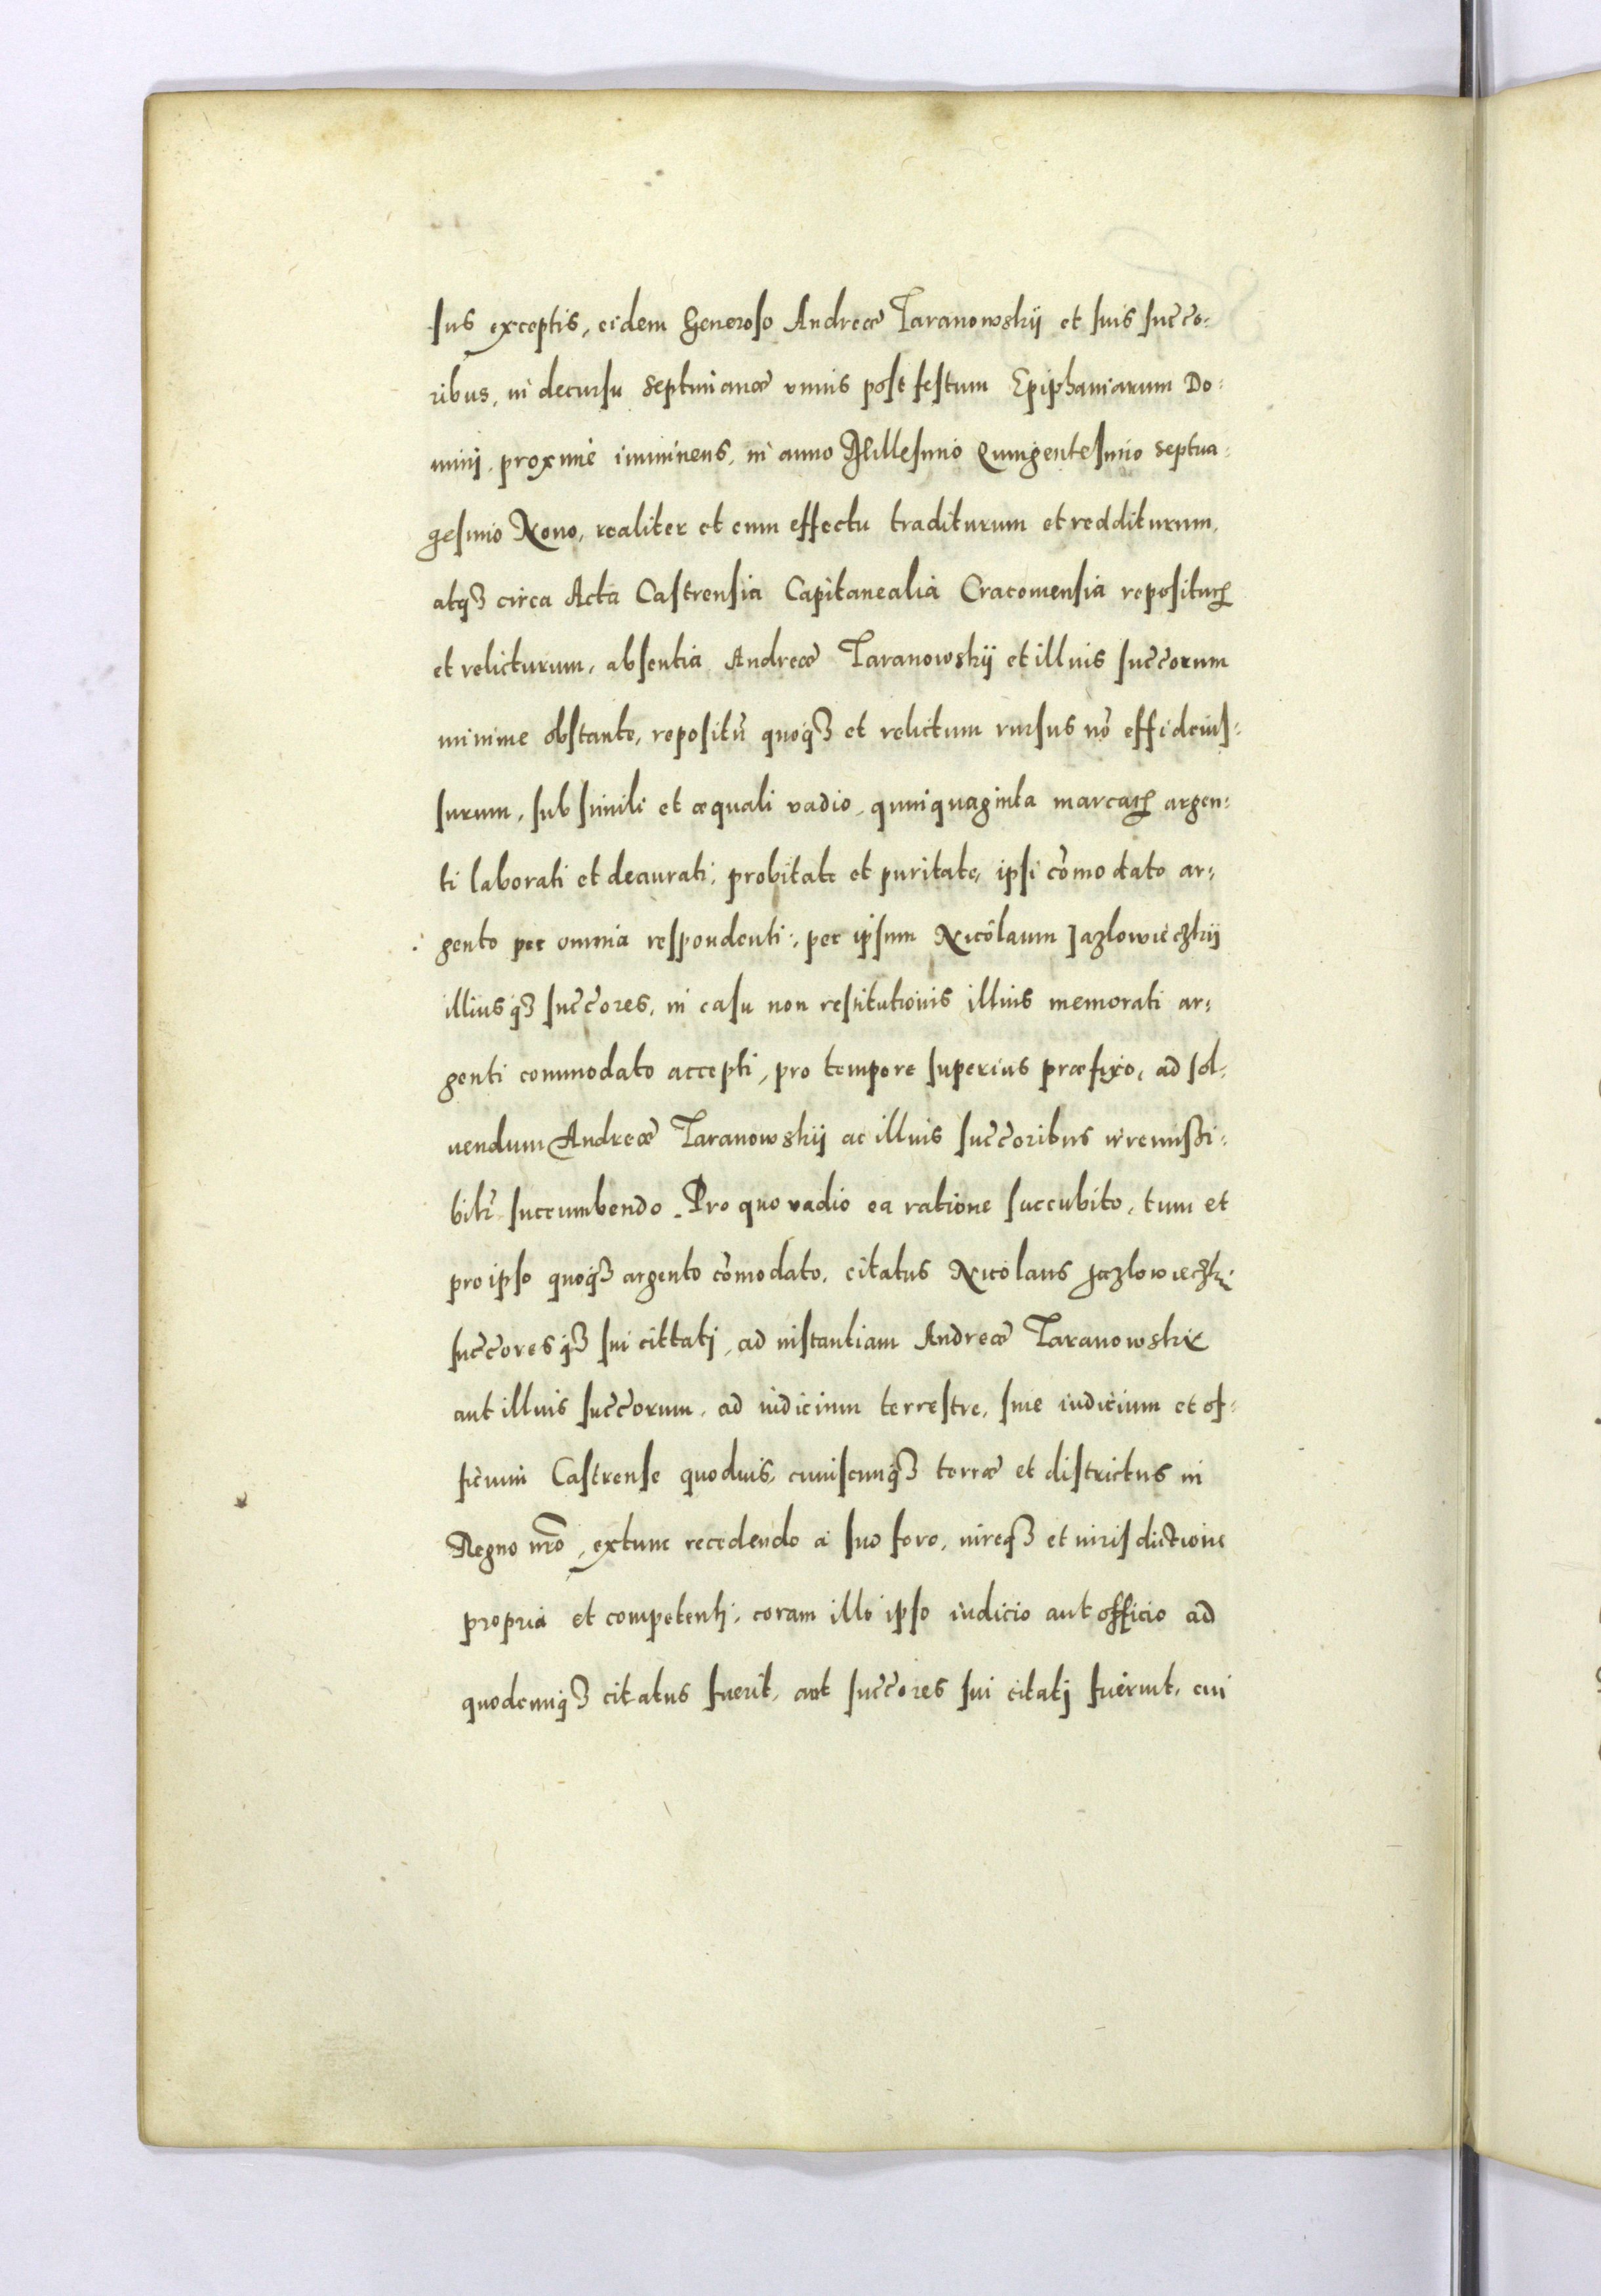 sus exceptis, eidem Generoso Andreæ Taranowskij et suis succo-
ribus, in decursu septimanæ vnius post festum Epiphaniarum Do-
minij, proxime imminens, in anno Millesimo Quingentesimo septua-
gesimo Nono, realiter et cum effectu traditurum et redditurum,
atqꝫ circa Acta Castrensia Capitanealia Cracouiensia repositurꝝ
et relicturum, absentia Andreæ Taranowskij et illius succorum
minime obstante, repositũ quoqꝫ et relictum rursus nõ
surum, sub simili et æquali vadio, quinquaginta marcaꝝ argen-
ti laborati et deaurati, probitate et puritate, ipsi cõmodato ar-
gento per omnia respondenti, per ipsum Nicolaum Jazlowieczkij
illiusqꝫ succores, in casu non restitutionis illius memorati ar-
genti commodato accepti, pro tempore superius præfixo, ad sol-
uendum Andreæ Taranowskij ac illius succoribus irremissi-
bilr̃ succumbendo. Pro quo vadio ea ratione succubito, tum et
pro ipso quoqꝫ argento cõmodato, citatus Nicolaus Jazlowieczki
succoresqꝫ sui cittatj, ad instantiam Andreæ Taranowskij
aut illius succorum, ad iudicium terrestre, siue iudicium et of-
ficium Castrense quoduis, cuiuscunqꝫ terræ et districtus in
Regno nr̃o, extunc recedendo a suo foro, iureqꝫ et iurisdictione
propria et competenti, coram illo ipso iudicio aut officio ad
quodcunqꝫ citatus fuerit, aut succores sui citatj fuerint, cui